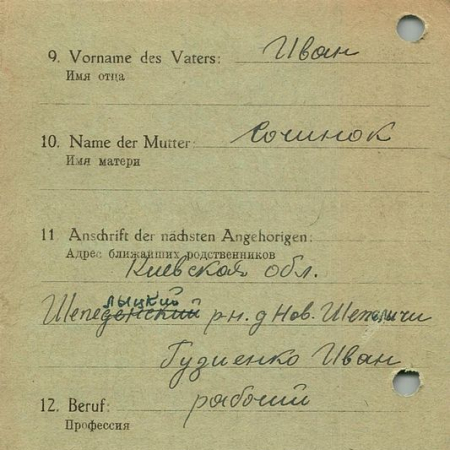 9. Vorname des Vaters: Иван
Имя отца
10. Name der Mutter: Сочинок
Имя матери
11. Anschrift der nächsten Angehörigen:
Адрес ближайших родственников
Киевская обл.
рн. д Нов. Шепеличи
Гудиенко Иван
12. Beruf: рабочий
Профессия